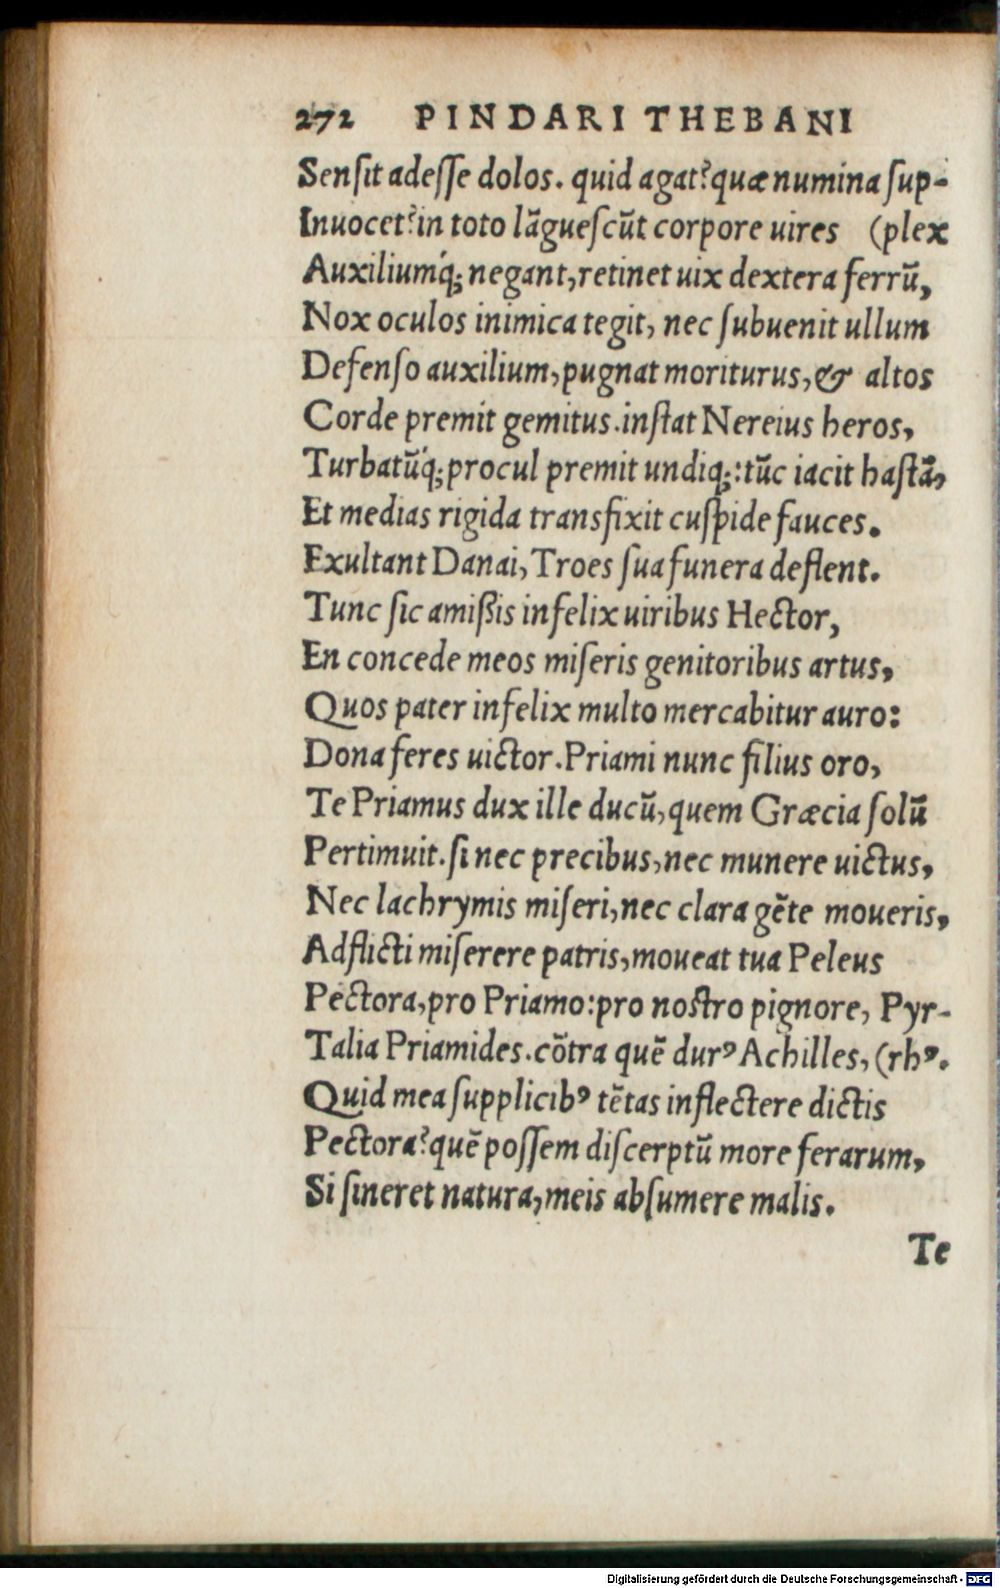 272 PINDARI THEBANI
Senſit adeſſe dolos. quid agat? quæ numina ſup-
Inuocet? in toto lãgueſcũt corpore uires (plex
Auxiliumq́ꝫ negant, retinet uix dextera ferrũ,
Nox oculos inimica tegit, nec ſubuenit ullum
Defenſo auxilium, pugnat moriturus, & altos
Corde premit gemitus. inſtat Nereius heros,
Turbatũq́ꝫ procul premit undiqꝫ: tũc iacit haſtã,
Et medias rigida transfixit cuſpide fauces.
Exultant Danai, Troes ſua funera deflent.
Tunc ſic amißis infelix uiribus Hector,
En concede meos miſeris genitoribus artus,
Quos pater infelix multo mercabitur auro:
Dona feres uictor. Priami nunc filius oro,
Te Priamus dux ille ducũ, quem Græcia ſolũ
Pertimuit. ſi nec precibus, nec munere uictus,
Nec lachrymis miſeri, nec clara gẽte moueris,
Adflicti miſerere patris, moueat tua Peleus
Pectora, pro Priamo: pro noſtro pignore, Pyr-
Talia Priamides. cõtra quẽ durꝰ Achilles, (rhꝰ.
Quid mea ſupplicibꝰ tẽtas inflectere dictis
Pectora? quẽ poſſem diſcerptũ more ferarum,
Si ſineret natura, meis abſumere malis.
Te
Digitalisierung gefördert durch die Deutsche Forschungsgemeinschaft - DFG